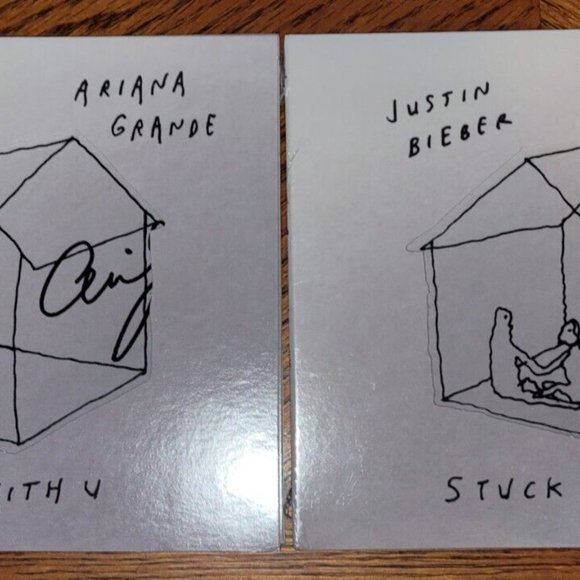 ARIANA
GRANDE
ITH U
JUSTIN
BIEBER
STUCK